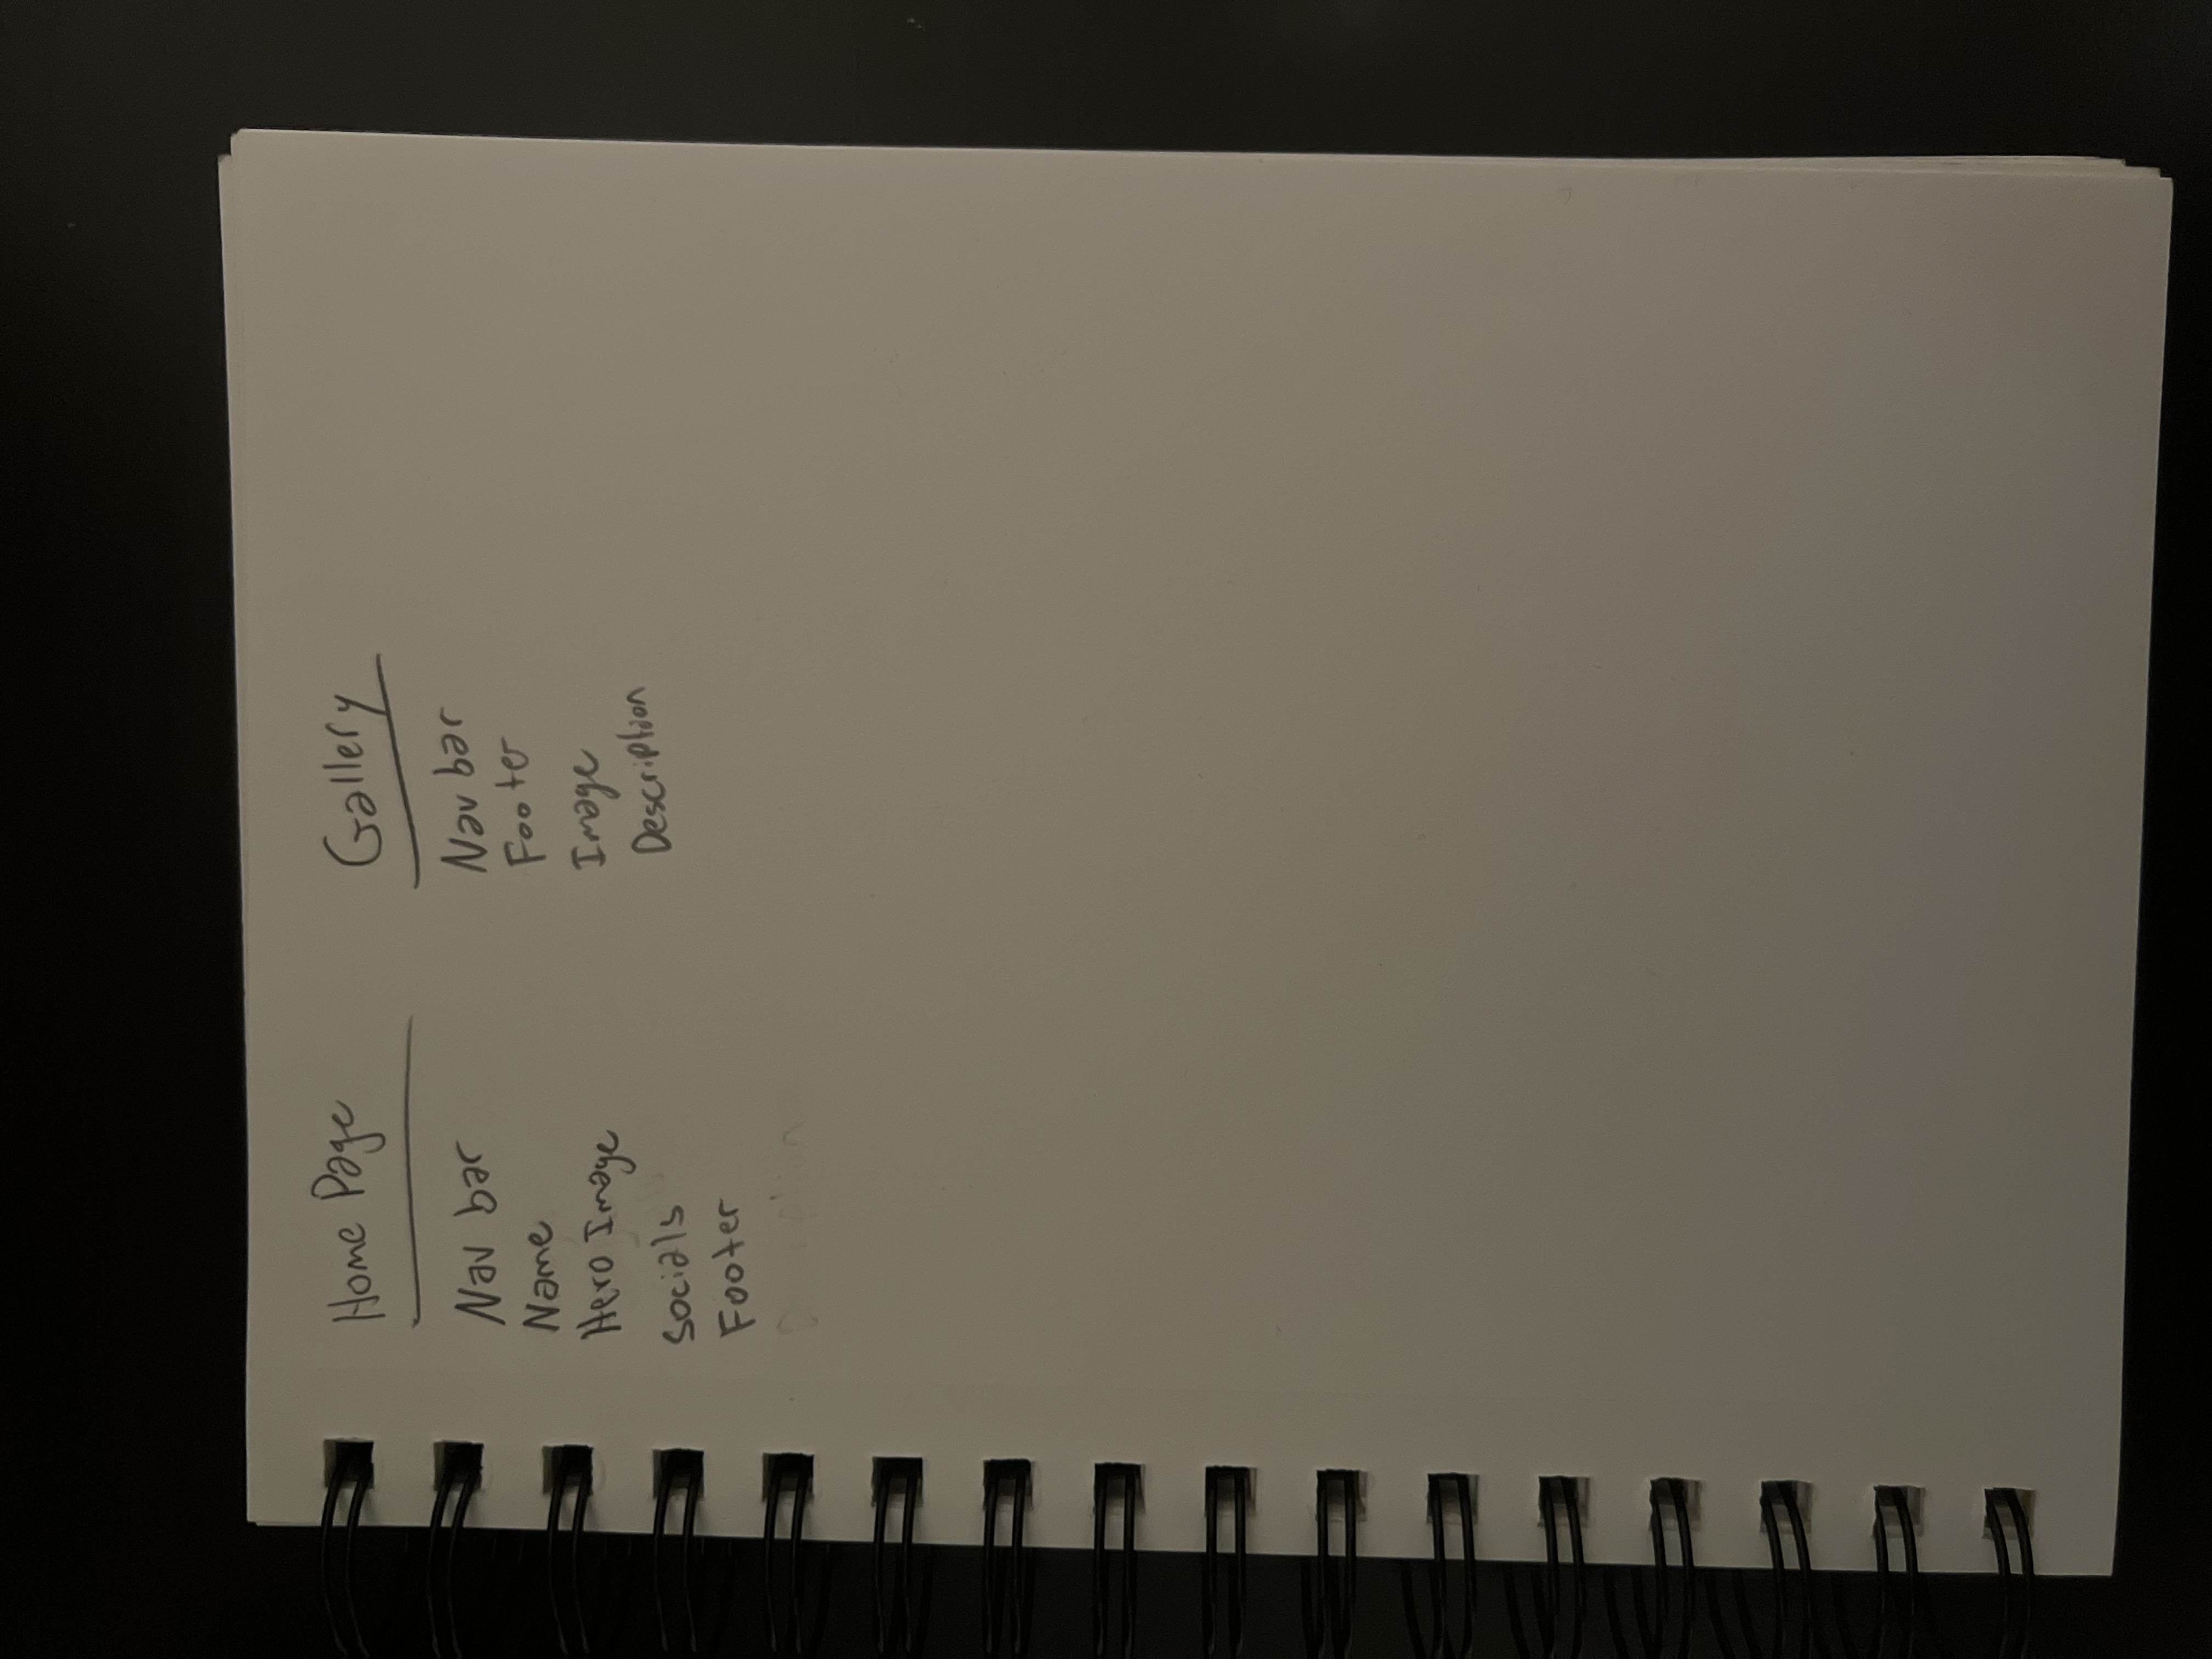 Home Page
Nav bar
Name
Hero Image
Socials
Footer
Gallery
Nav bar
Footer
Image
Description